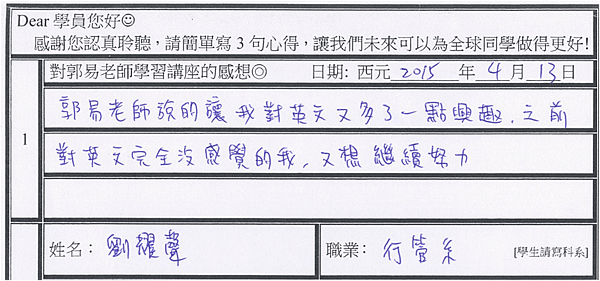 Dear 學員您好☺
感謝您認真聆聽，請簡單寫 3 句心得，讓我們未來可以為全球同學做得更好!
對郭易老師學習講座的感想◎ 日期: 西元 2015 年 4 月 13 日
1
郭易老師說的讓我對英文又多了一點興趣，之前
對英文完全沒感覺的我，又想繼續努力
姓名： 劉耀聲
職業： 行管系 [學生請寫科系]